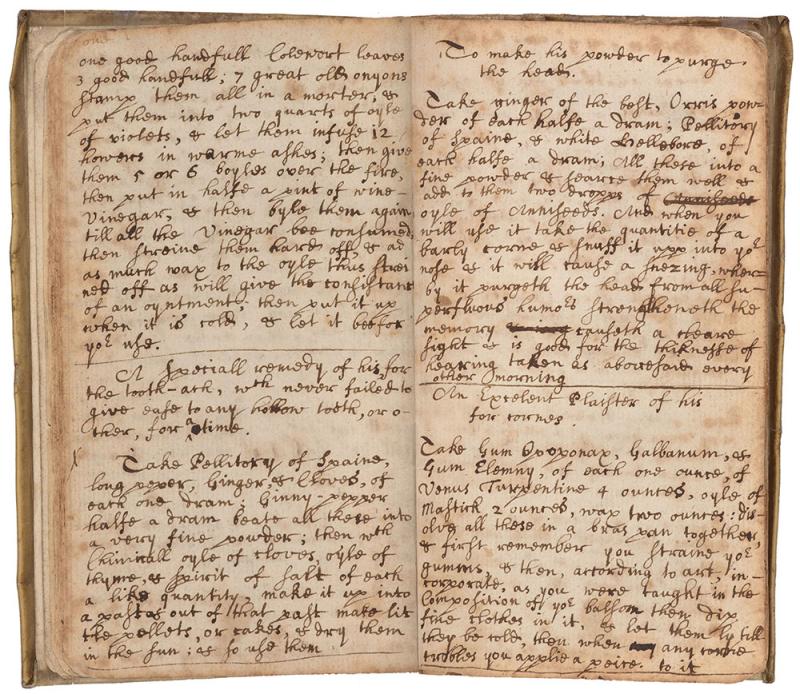 one
one good handfull Colewort leaves
3 good handfull; 7 great old onyons
stamp them all in a morter, &
put them into two quarts of oyle
of violets, & let them infuse 12
howers in warme ashes; then give
them 5 or 6 boyles over the fire,
then put in halfe a pint of wine-
Vinegar, & then byle them again
till all the Vinegar bee consumed
then streine them hard off, & ad
as much wax to the oyle thus strei-
ned off as will give the consistanc
of an oyntment; then put it up
when it is cold, & let it bee for
yor use.
A Speciall remedy of his for
the tooth-ach, wch never failed to
give ease to any hollow tooth, or o-
ther, for a time.
Take Pellitory of Spaine,
long peper, Ginger, & Cloves, of
each one dram; Ginny-pepper
halfe a dram beate all these into
a very fine powder; then wth
Chimicall oyle of cloves, oyle of
thyme, & Spirit of Salt of each
a like quantity, make it up into
a past & out of that past make lit
tle pellets, or cakes, & dry them
in the sun: & so use them
To make his powder to purge
the head.
Take ginger of the best, Orris pow-
der of each halfe a dram; Pellitory
of Spaine, & white Hellebore, of
each halfe a dram; All these into a
fine powder & searce them well &
add to them two dropps of Anniseeds
oyle of Anniseeds. And when you
will use it take the quantitie of a
barly corne & snuff it upp into yor
nose & it will cause a snezing, wher-
by it purgeth the head from all su-
perfluous humors strengtheneth the
memory causeth a cleare
sight & is good for the thiknesse of
hearing taken as abovesaid every
other morning
An Excelent Plaister of his
for cornes.
Take Gum Opoponax, Galbanum, &
Gum Elemny, of each one ounce, of
Venus Turpentine 4 ounces, oyle of
Mastick 2 ounces, wax two ounces: dis-
olve all these in a bras pan together,
& first remember you straine yor
gumms, & then, according to art, in-
corporate, as you were taught in the
Composition of yor balsom then dip
fine clothes in it, & let them ly till
they be cold, then when any corne
trobles you applie a peice. to it